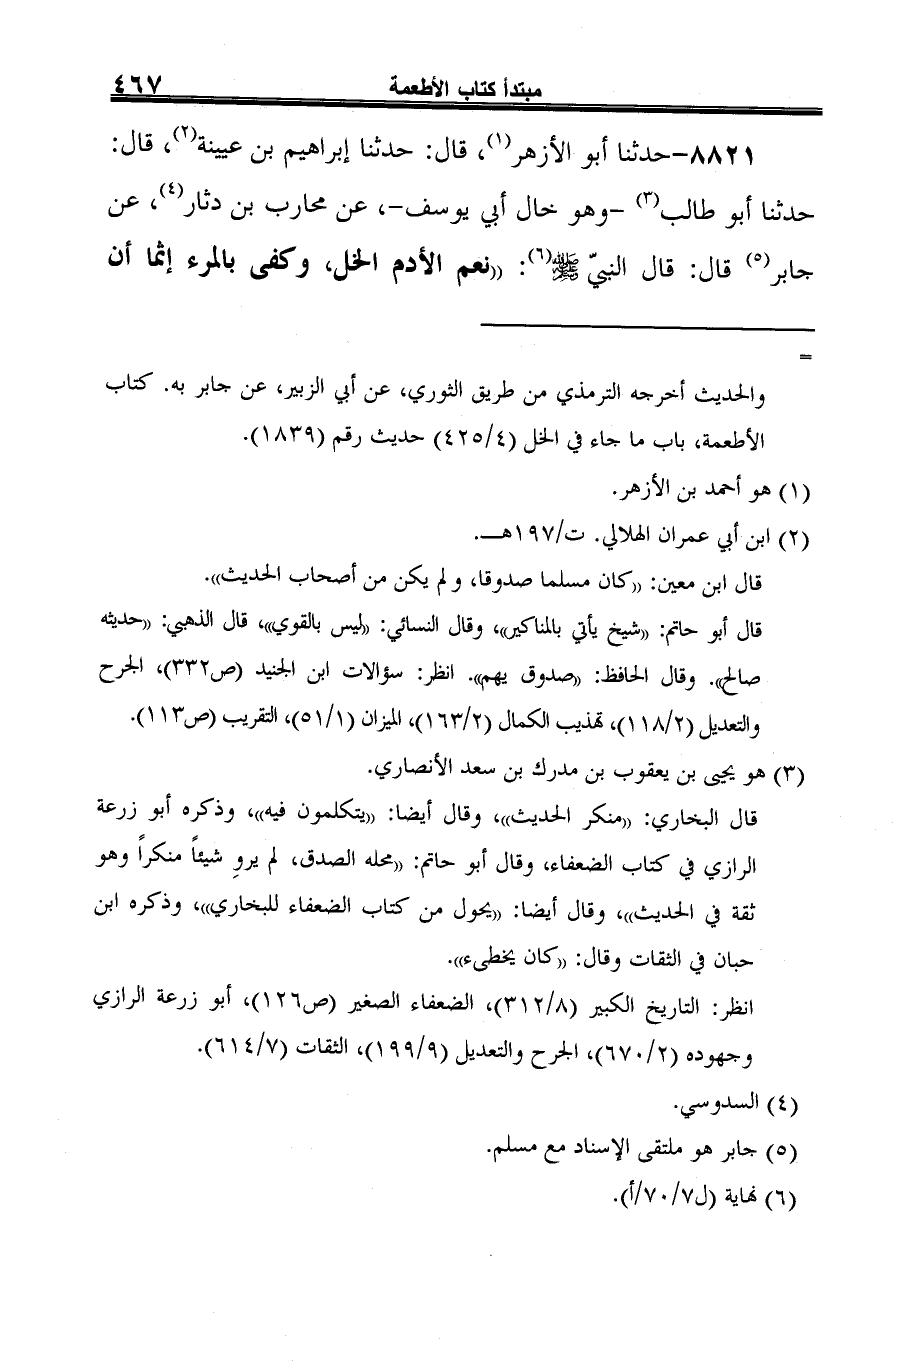 مبتدأ كتاب الأطعمة ٤٦٧
٨٨٢١-حدثنا أبو الأزهر(١)، قال: حدثنا إبراهيم بن عيينة(٢)، قال:
حدثنا أبو طالب(٣) -وهو خال أبي يوسف-، عن محارب بن دثار(٤)، عن
جابر(٥) قال: قال النبيّ ﷺ(٦): ((نعم الأدم الخل، وكفى بالمرء إثما أن
=
والحديث أخرجه الترمذي من طريق الثوري، عن أبي الزبير، عن جابر به. كتاب
الأطعمة، باب ما جاء في الخل (٤٢٥/٤) حديث رقم (١٨٣٩).
(١) هو أحمد بن الأزهر.
(٢) ابن أبي عمران الهلالي. ت/١٩٧هـ.
قال ابن معين: ((كان مسلما صدوقا، و لم يكن من أصحاب الحديث)).
قال أبو حاتم: ((شيخ يأتي بالمناكير))، وقال النسائي: ((ليس بالقوي))، قال الذهبي: ((حديثه
صالح)). وقال الحافظ: ((صدوق يهم)). انظر: سؤالات ابن الجنيد (ص٣٣٢)، الجرح
والتعديل (١١٨/٢)، تهذيب الكمال (١٦٣/٢)، الميزان (٥١/١)، التقريب (ص١١٣).
(٣) هو يحيى بن يعقوب بن مدرك بن سعد الأنصاري.
قال البخاري: ((منكر الحديث))، وقال أيضا: ((يتكلمون فيه))، وذكره أبو زرعة
الرازي في كتاب الضعفاء، وقال أبو حاتم: ((محله الصدق، لم يروِ شيئاً منكراً وهو
ثقة في الحديث))، وقال أيضا: ((يحول من كتاب الضعفاء للبخاري))، وذكره ابن
حبان في الثقات وقال: ((كان يخطيء)).
انظر: التاريخ الكبير (٣١٢/٨)، الضعفاء الصغير (ص١٢٦)، أبو زرعة الرازي
وجهوده (٦٧٠/٢)، الجرح والتعديل (١٩٩/٩)، الثقات (٦١٤/٧).
(٤) السدوسي.
(٥) جابر هو ملتقى الإسناد مع مسلم.
(٦) نهاية (ل٧٠/٧/أ).